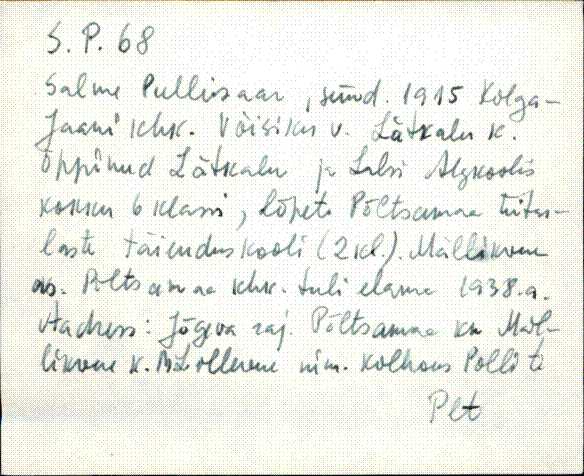 S. P. 68
Salme Pullisaar, sünd. 1915 Kolga-
Jaani khk. Võisiku v. Lätkalu k.
Õppinud Lätkalu ja Lalsi Algkoolis
kokku 6 klassi, lõpet. Põltsamaa tütar-
laste täienduskooli (2 kl.). Mällikvere
as. Põltsamaa khk. tuli elama 1938. a.
Aadress: Jõgeva raj. Põltsamaa kn Mäl-
likvere k. nim. kolhoos Polli t.